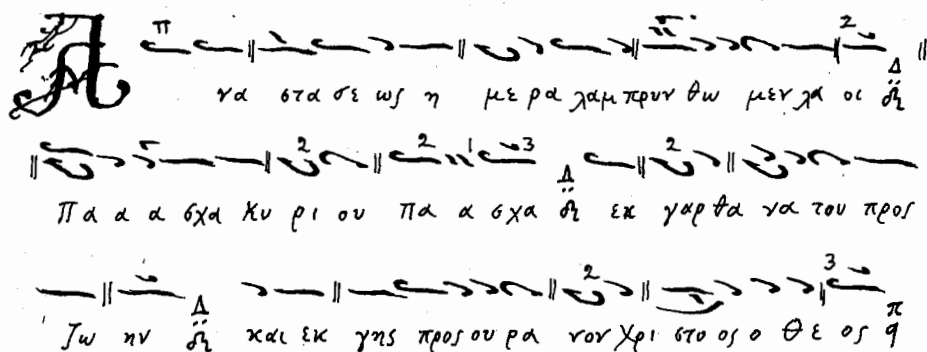 Α να στα σε ως η με ρα λαμ πρυν θω μεν λα οι
Πα α α σχα Κυ ρι ου Πα α σχα εκ γαρ θα να του προς
ζω ην και εκ γης προς ου ρα νον Χρι στο ος ο Θε ος